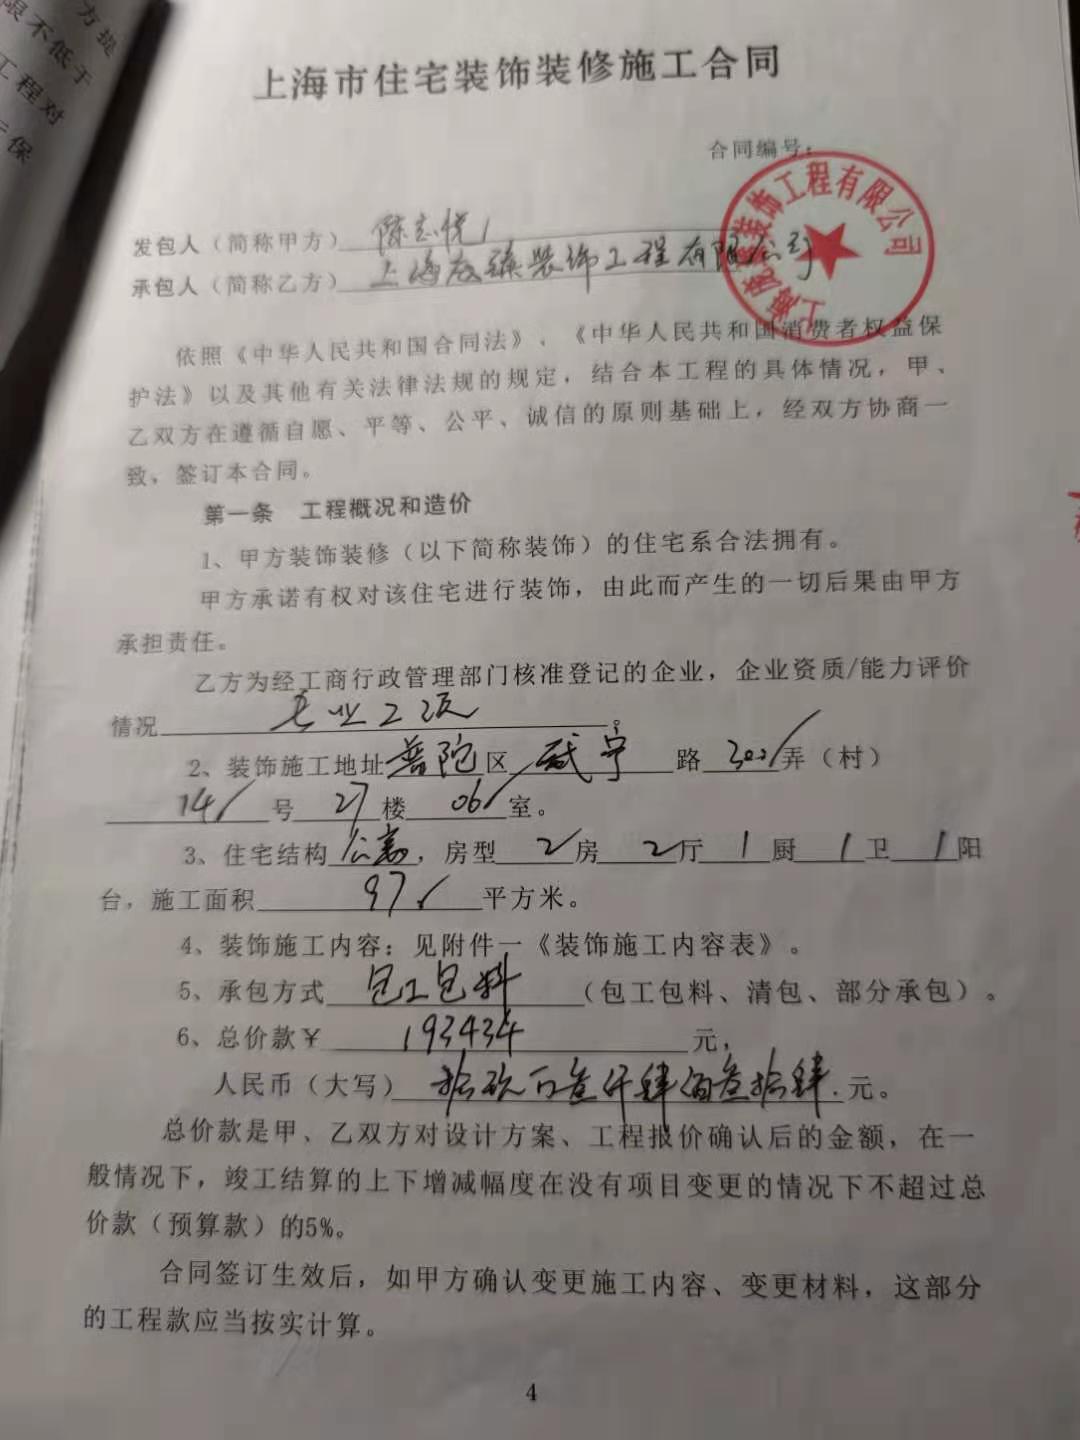 方提
限不低于
工程对
保
上海市住宅装饰装修施工合同
合同编号：
发包人（简称甲方）陈志悦
承包人（简称乙方）上海 装饰工程有限公司
上海 装饰工程有限公司
依照《中华人民共和国合同法》、《中华人民共和国消费者权益保
护法》以及其他有关法律法规的规定，结合本工程的具体情况，甲、
乙双方在遵循自愿、平等、公平、诚信的原则基础上，经双方协商一
致，签订本合同。
第一条 工程概况和造价
1、甲方装饰装修（以下简称装饰）的住宅系合法拥有。
甲方承诺有权对该住宅进行装饰，由此而产生的一切后果由甲方
承担责任。
乙方为经工商行政管理部门核准登记的企业，企业资质/能力评价
情况 专业2级。
2、装饰施工地址普陀区 咸宁 路 300弄（村）
14 号 27 楼 06 室。
3、住宅结构公寓，房型 2 房 2 厅 1 厨 1 卫 1 阳
台，施工面积 97 平方米。
4、装饰施工内容：见附件一《装饰施工内容表》。
5、承包方式 包工包料 （包工包料、清包、部分承包）。
6、总价款￥ 193434 元，
人民币（大写） 拾玖万叁仟肆佰叁拾肆.元。
总价款是甲、乙双方对设计方案、工程报价确认后的金额，在一
般情况下，竣工结算的上下增减幅度在没有项目变更的情况下不超过总
价款（预算款）的5%。
合同签订生效后，如甲方确认变更施工内容、变更材料，这部分
的工程款应当按实计算。
4